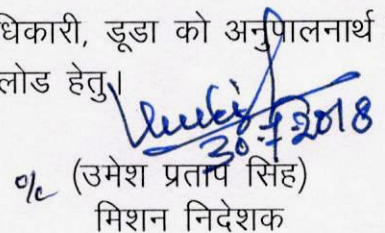 धिकारी, डूडा को अनुपालनार्थ
लोड हेतु।
30.7.2018
(उमेश प्रताप सिंह)
मिशन निदेशक